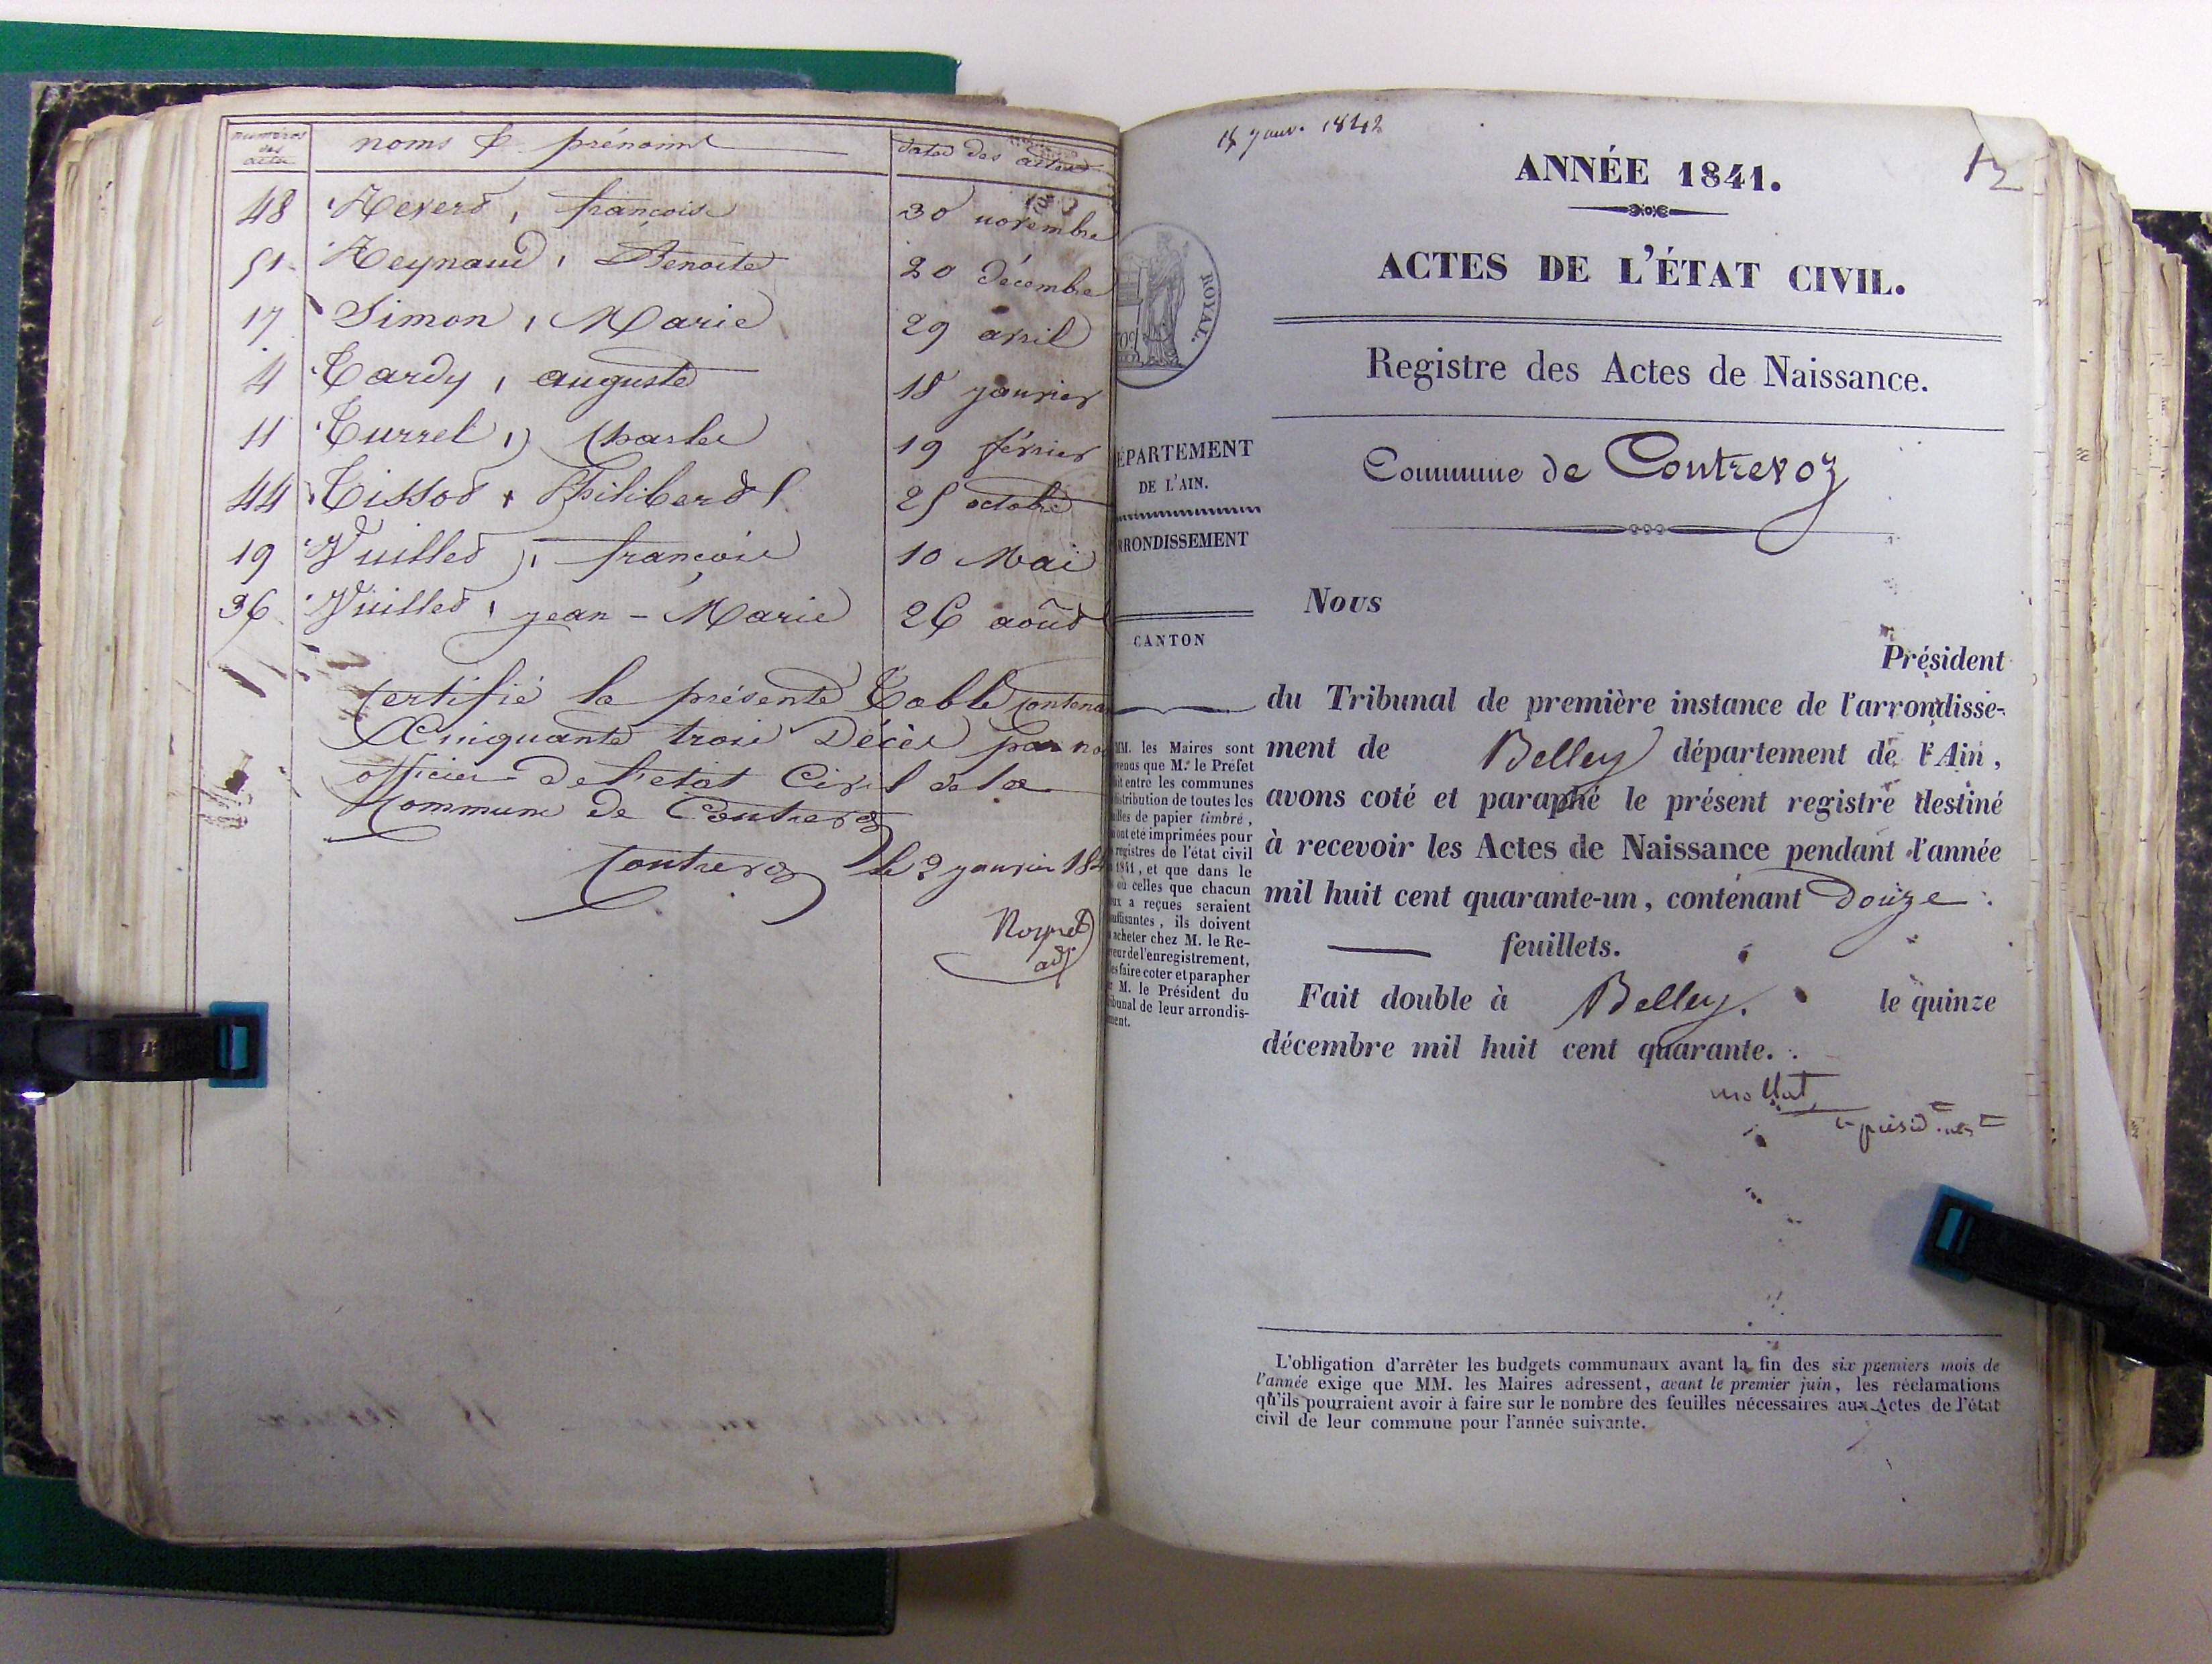 numéros des actes
noms & prénoms
dates des actes
48 Reverd, françoise 30 novembre
51 Reynaud, Benoîte 20 décembre
17 Simon, Marie 29 avril
4 Tardy, auguste 18 janvier
11 Turrel, Charles 19 février
44 Tissot, Philiberd 25 octobre
19 Vuilled, françois 10 Mai
36 Vuilled, jean-Marie 26 aoûd
Certifié la présente Table
Cinquante trois Décès par
officier de l'etat Civil de la
Commune de Contrevoz
Contrevoz le 2 janvier
adj
janv. 1842
12
ANNÉE 1841.
ACTES DE L'ÉTAT CIVIL.
ROYAL.
Registre des Actes de Naissance.
Commune de Contrevoz
DE L'AIN.
CANTON
Nous
Président
du Tribunal de première instance de l'arrondisse-
ment de Belley département de l'Ain,
avons coté et paraphé le présent registre destiné
à recevoir les Actes de Naissance pendant l'année
mil huit cent quarante-un, contenant Douze
feuillets.
Fait double à Belley. le quinze
décembre mil huit cent quarante.
mollat
MM. les Maires sont
que M.r le Préfet
entre les communes
distribution de toutes les
de papier timbré,
ont été imprimées pour
registres de l'état civil
1841, et que dans le
où celles que chacun
a reçues seraient
ils doivent
acheter chez M. le Re-
de l'enregistrement,
les faire coter et parapher
M. le Président du
de leur arrondis-
L'obligation d'arrêter les budgets communaux avant la fin des six premiers mois de
l'année exige que MM. les Maires adressent, avant le premier juin, les réclamations
qu'ils pourraient avoir à faire sur le nombre des feuilles nécessaires aux Actes de l'état
civil de leur commune pour l'année suivante.